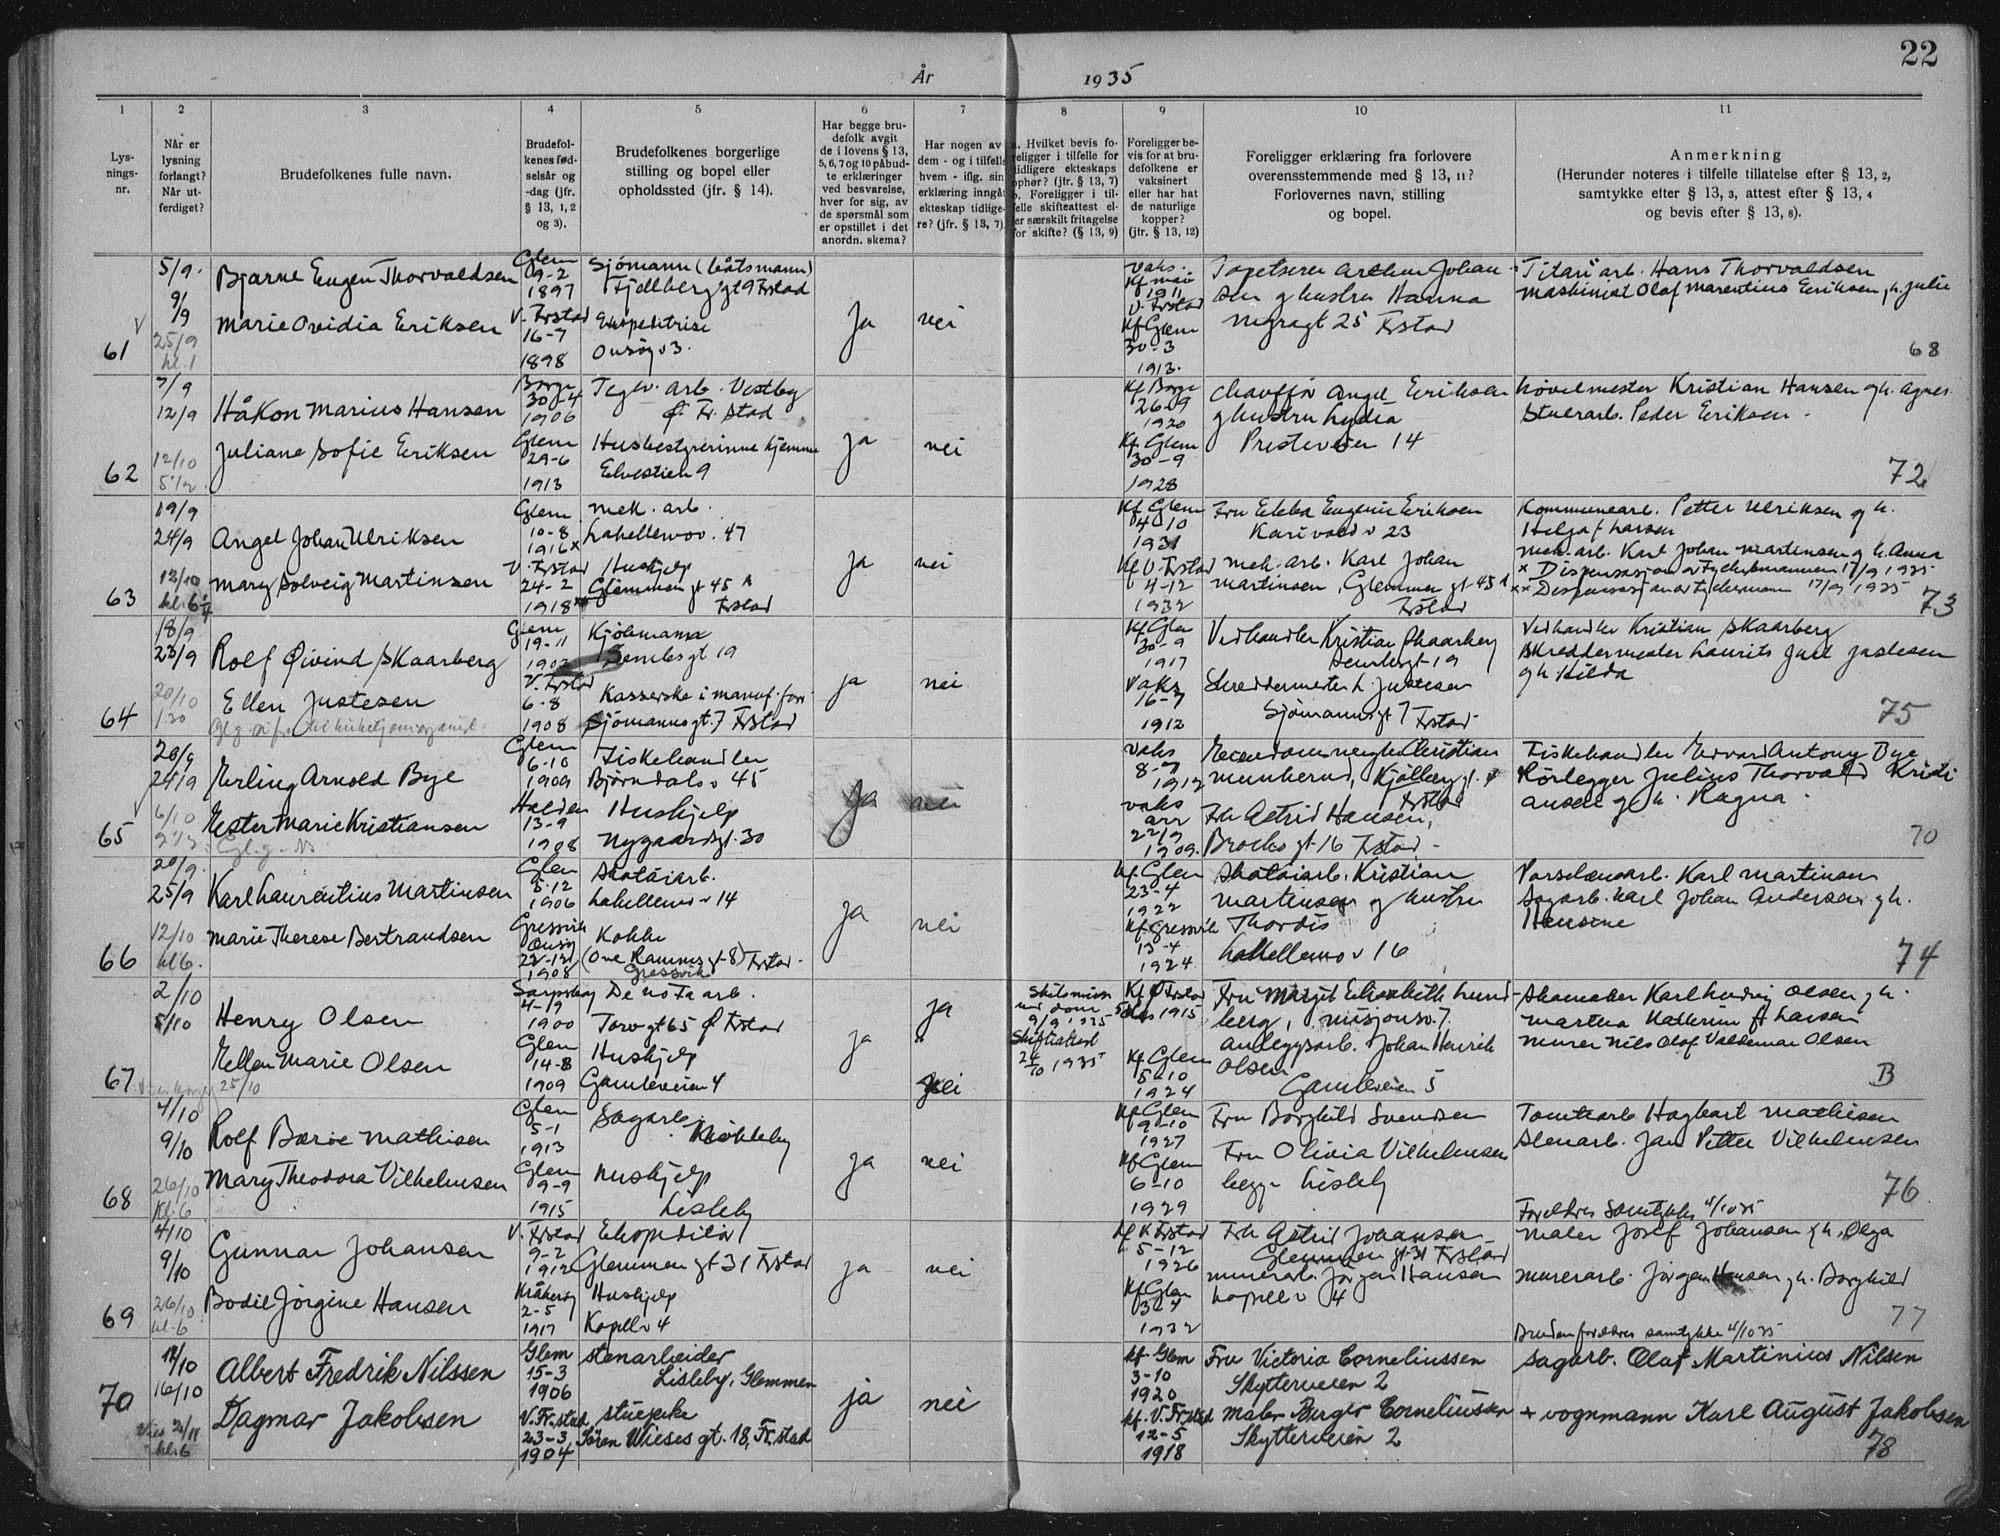 22
År
1935
1
2
3
4
5
6
7
8
9
10
11
Lys-
nings-
nr.
Når er
lysning
forlangt?
Når ut-
ferdiget?
Brudefolkenes fulle navn.
Brudefol-
kenes fød-
selsår og
-dag (jfr.
§ 13, 1, 2
og 3).
Brudefolkenes borgerlige
stilling og bopel eller
opholdssted (jfr. § 14).
Har begge bru-
defolk avgit
de i lovens § 13,
5, 6, 7 og 10 påbud-
te erklæringer
ved besvarelse,
hver for sig, av
de spørsmål som
er opstillet i det
anordn. skema?
Har nogen av
dem - og i tilfelle
hvem - iflg. sin
erklæring inngåt
ekteskap tidlige-
re? (jfr. § 13, 7).
a. Hvilket bevis fo-
religger i tilfelle for
tidligere ekteskaps
ophør? (jfr. § 13, 7)
b. Foreligger i til-
felle skifteattest el-
ler særskilt fritagelse
for skifte? (§ 13, 9)
Foreligger be-
vis for at bru-
defolkene er
vaksinert
eller har hat
de naturlige
kopper?
(jfr. § 13, 12)
Foreligger erklæring fra forlovere
overensstemmende med § 13, 11?
Forlovernes navn, stilling
og bopel.
Anmerkning
(Herunder noteres i tilfelle tillatelse efter § 13, 2,
samtykke efter § 13, 3, attest efter § 13, 4
og bevis efter § 13, 8).
61
5/9.
9/9
25/9
kl. 1
Bjarne Eugen Thorvaldsen
Marie Ovidia Eriksen
Glem
9-2
1897
V. Frstad
16-7
1898
Sjömann (båtsmann)
Fjellberggt 9 Frstad
Ekspeditrise
Onsøy v 3.
Ja
nei
vaks.
Kf mai
1911
V. Frstad
Kf Glem
30-3
1913.
Tapetserer Arthur Johan-
sen g hustru Hanna
Nygragt 25 Frstad
Titan arb. Hans Thorvaldsen
Maskinist Olaf Marentius Eriksen g h. Julie
68
62
7/9
12/9
12/10
5 1/2
Håkon Marius Hansen
Juliane Sofie Eriksen
Borge
30-4
1906
Glem
29-6
1913
Teglv. arb. Vestby
Ø. Fr. stad
Husbestyrerinne hjemme
Elvestien 9
ja
nei
Kf Borge
26-9
1920
Kf. Glem
30-9
1928
Chauffør Angel Eeriksen
g hustru Lydia
Presteveien 14
høvelmester Kristian Hansen g h. Agnes
Stuerarb. Peder Eriksen.
72
63
19/9
24/9
12/10
kl. 6 1/4
Angel Johan Ulriksen
Mary Solveig Martinsen
Glem
10-8
1916 x
V. Frstad
24-2
1918 xx
mek. arb.
Lahellemov. 47
Hushjelp
Glemmengt 45 A
Frstad
Ja
nei
Kf Glem
4-10
1931
Kf V. Frstad
4-12
1932
Fru Ebba Eugenie Eriksen
Karivold v 23
mek. arb. Karl Johan
Martinsen, Glemmengt 45 A
Frstad
Kommunearb. Petter Ulriksen g h.
Helga f Larsen
mek. arb. Karl Johan Martinsen g h. Anna
x Dispensasjon av fylkesmannen 17/9 1935
xx Dispensasjon av fylkesmann 17/9 1935
73
64
18/9
23/9
20/10
1.30
Rolf Øivind Skaarberg
Ellen Justesen
Glem
19-11
1902
V. Frstad
6-8
1908
Kjøbmann
Sembsgt 19
Kasserske i manuf. forr.
Sjømannsgt. 7 Frstad
ja
nei
Kf Glem
30-9
1917
Vaks
16-7
1912
Vedhandler Kristian Skaarberg
Sembsgt 19
Skreddermester L. Justesen
Sjömannsgt 7 Frstad
Vedhandler Kristian Skaarberg
Skreddermester Laurits Juel Justesen
g h Hilda
75
65
20/9
24/9
6/10
Erling Arnold Bye
Ester Marie Kristiansen
Glem
6-10
1909
Halden
13-9
1908
Fiskehandler
Bjørndalsv 45
Hushjelp
Nygaardsgt. 30
Ja
nei
vaks
8-7
1912
vaks
arr
22/9
1909.
Frstad
Fru Astrid Hansen,
Brochsgt 16 Frstad
Fiskehandler Edvard Antony Bye
Rörlegger Julius Thorvald Kristi
ansen g h. Ragna.
70
66
20/9.
25/9
12/10
kl 6.
Karl Laurentius Martinsen
Marie Therese Bertrandsen
Glem
5-12
1906
Gressvik
Onsøy
22-12
1908
Skotöiarb.
Lahellemov 14
Kokke
(Ove Ramms gt 8) Frstad
Gressvik
Ja
nei
Kf. Glem
23-4
1922
Kf. Gressvik
13-4
1924
Skotöiarb. Kristian
Martinsen g hustru
Thordis
Lahellemov 16
Karl Martinsen
Sagarb. Karl Johan Andersen g h.
Hansine
74
67
2/10
5/10
25/10
Henry Olsen
Ellen Marie Olsen
Sarpsborg
4-19
1900
Glem
14-8
1909
De no Fa arb.
Torvgt 65 Ø Frstad
Hushjelp
Gamleveien 4
ja
ja
nei
Skilsmisse
ved dom
9/9 1935
Skifteattest
2/10 1935
Kf Ø Frstad
1915
Kf. Glem
5-10
1924
Fru Margit Elisabeth Lund-
berg, Misjonsv. 7.
Anleggsarb. Johan Henrik
Olsen
Gamleveien 5
Skomaker Karl Ludvig Olsen g h.
Martha Kathrine f Larsen
Murer Nils Olof Valdemar Olsen
B
68
4/10
9/10
26/10
Kl. 6
Rolf Børoe Mathisen
Mary Theodora Vilhelmsen
Glem
5-1
1913
Glem
9-9
1915
Sagarb.
Nøkleby
Hushjelp
Lisleby
Ja
nei
Kf Glem
9-10
1927
Kf Glem
6-10
1929
Fru Borghild Svendsen
Fru Olivia Vilhelmsen
begge Lisleby
Tomtearb Hagbart Mathisen
Stenarb. Jan Petter Vilhelmsen
76
Foreldres Samtykke 4/10 35
69
4/10
9/10
26/10
kl. 6
Gunnar Johansen
Bodil Jörgine Hansen
V. Frstad
9-2
1912
Kråkerøy
2-5
1917
Ekspeditör
Glemmengt 31 Frstad
Hushjelp
Kapellv 4
ja
nei
Kf V Frstad
5-12
1926
Kf Glem
3-4
1932
Fru Astrid Johansen
Glemmengt 31 Frstad
murerarb. Jörgen Hansen
Kapellv 4
Maler Josef Johansen g h. Olga
Murerarb. Jörgen Hansen g h. Borghild
77
Brudens foreldres samtykke 4/10 35
70
12/10
16/10
Vies 2/11
kl. 6
Albert Fredrik Nilssen
Dagmar Jakobsen
Glem
15-3
1906
V. Fr. stad
23-3
1904
stenarbeider
Lisleby, Glemmen
stuepike
Søren Wieses gt. 18, Fr. stad
ja
nei
kf. Glem
3-10
1920
kf. V. Fr. stad
12-5
1918
Fru Victoria Corneliussen
Skytterveien 2
Maler Birger Corneliussen
Skytterveien 2
sagarb. Olaf Martinius Nilsen
+ vognmann Karl August Jakobsen
78